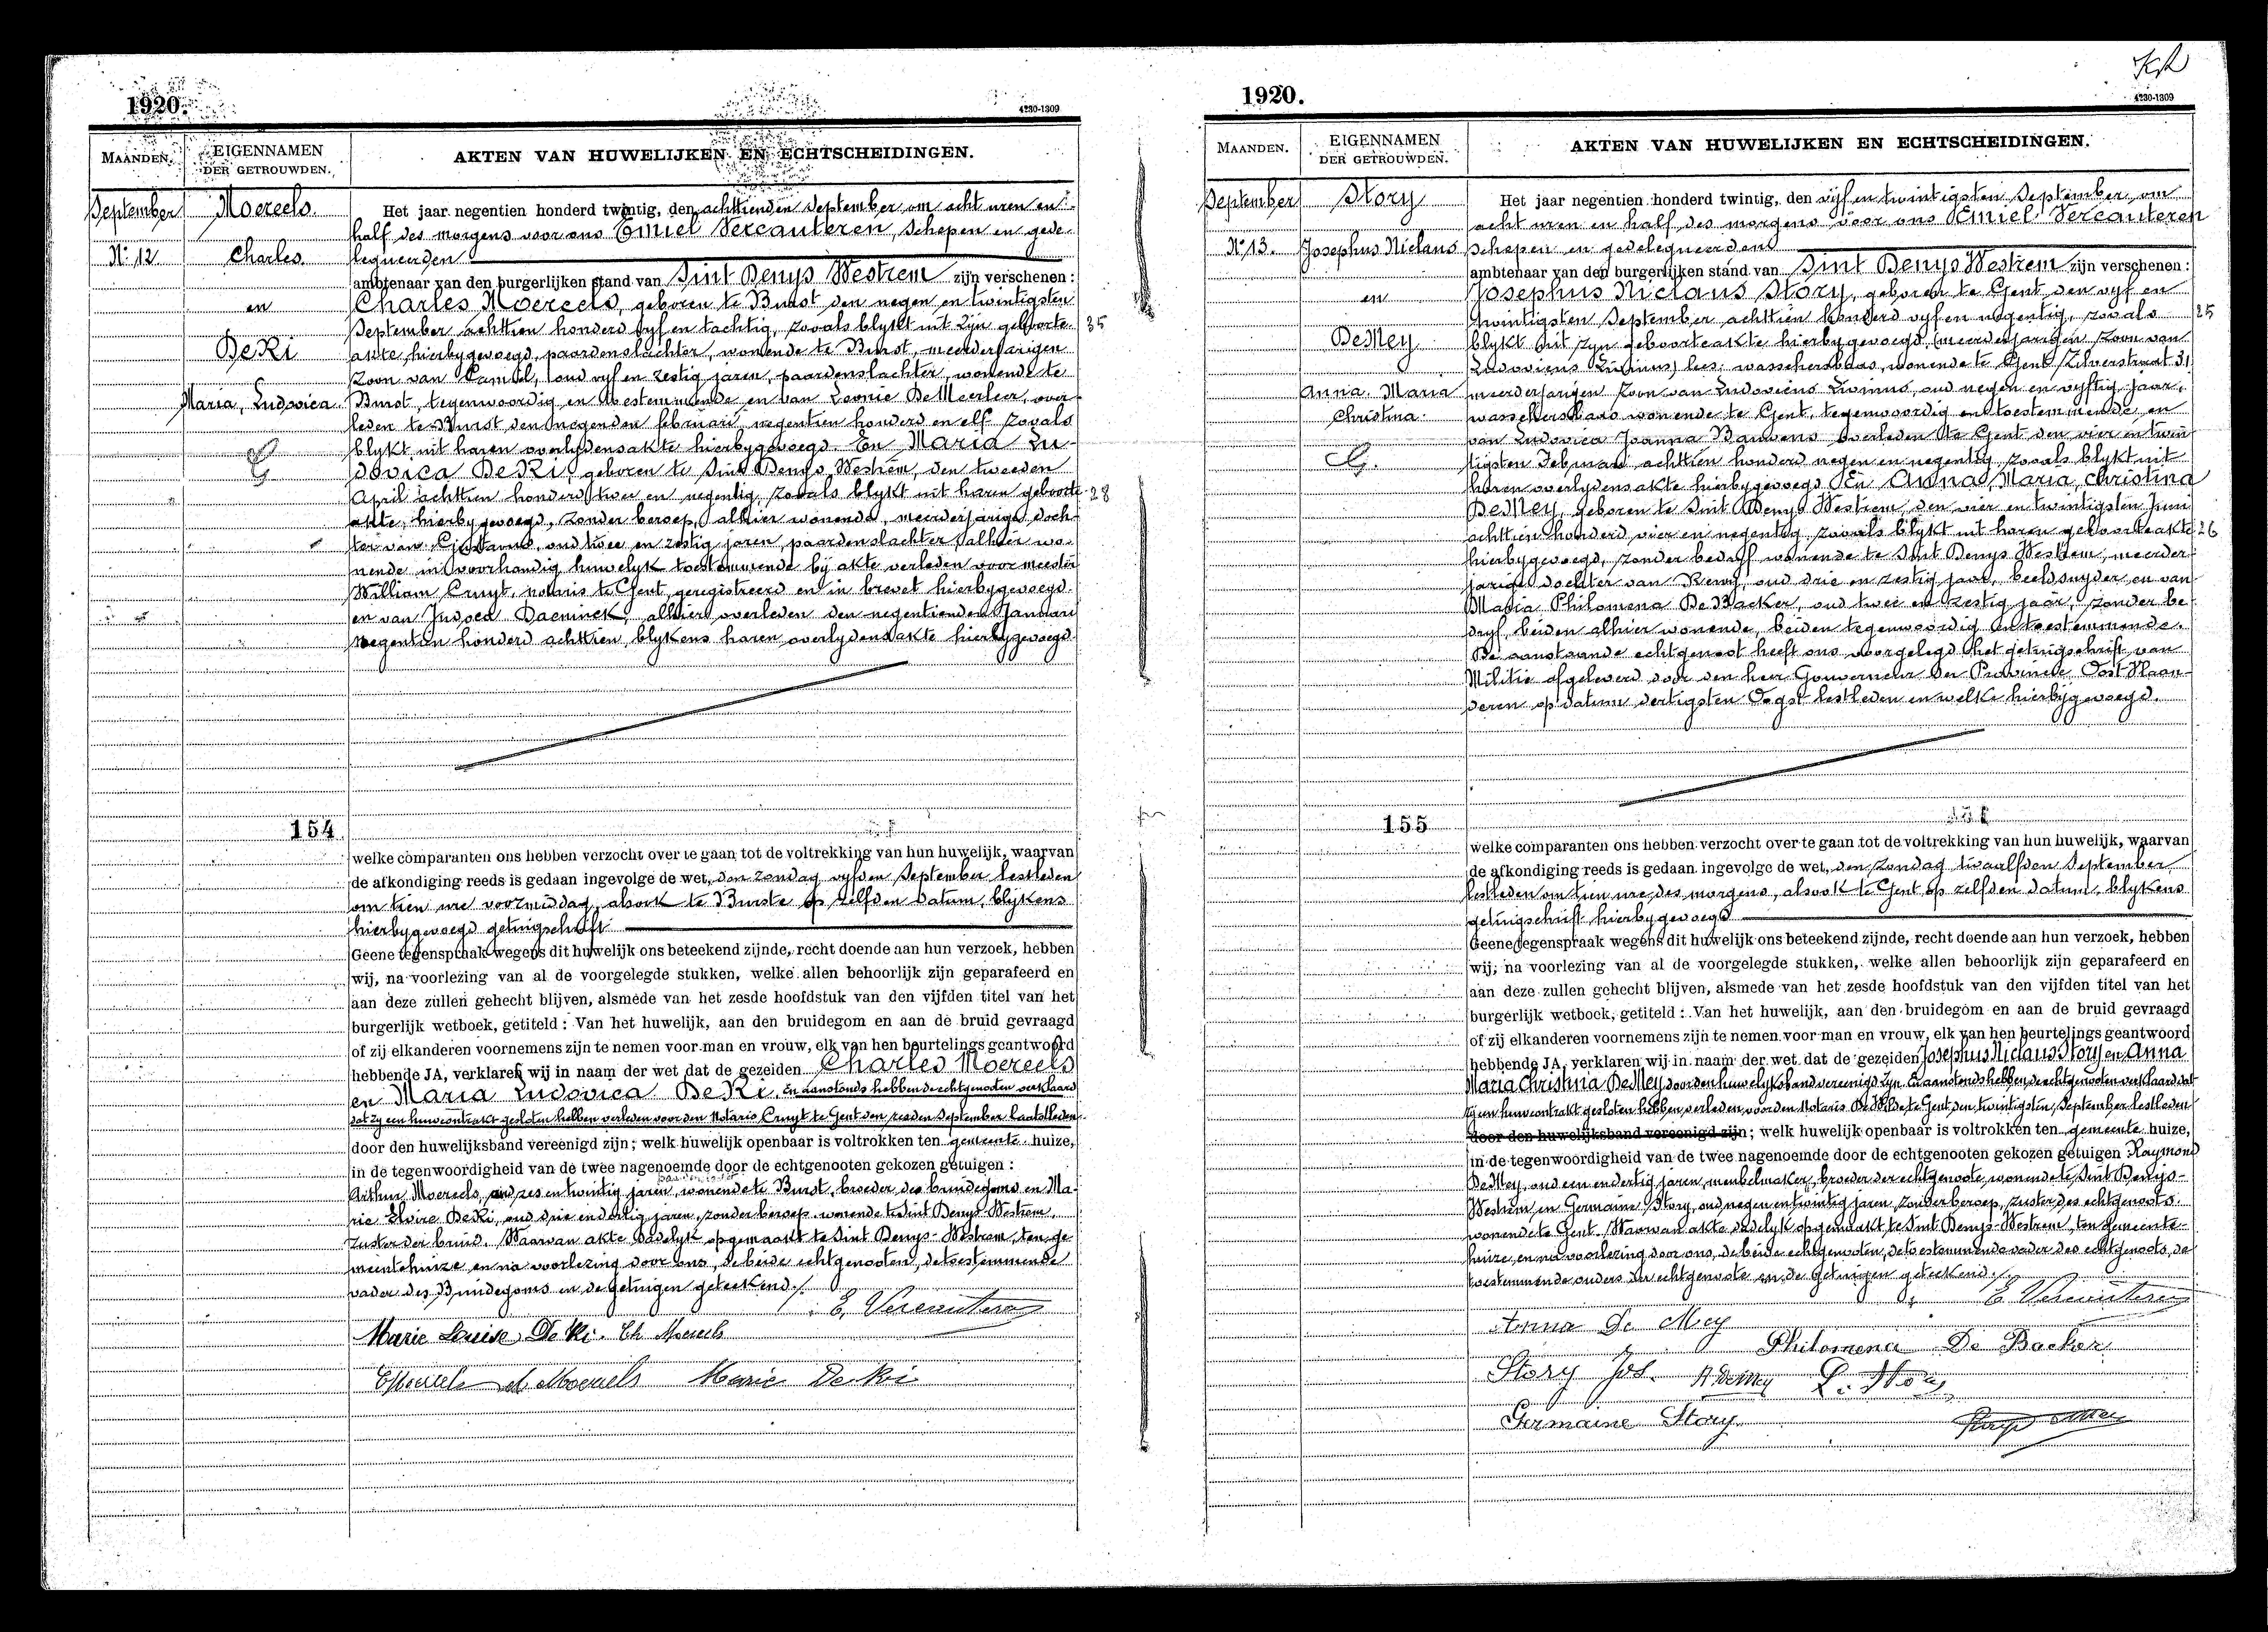 1920.
4230-1309
MAANDEN.
EIGENNAMEN
DER GETROUWDEN.
AKTEN VAN HUWELIJKEN EN ECHTSCHEIDINGEN.
September
Moereels
Nr 12
Charles
en
DeKi
Maria, Ludovica
Het jaar negentien honderd twintig, den achttienden September om acht uren en
half des morgens voor ons Emiel Vercauteren, Schepen en gede-
legueerden
ambtenaar van den burgerlijken stand van Sint Denys Westrem zijn verschenen:
Charles Moereels, geboren te Burst den negen en twintigsten
September achttien honderd vyf en tachtig, zooals blykt uit zijn geboorte- 35
akte hierbygevoegd, paardenslachter, wonende te Burst, meerderjarigen
zoon van Kamiel, oud vyf en zestig jaren, paardenslachter, wonende te
Burst, tegenwoordig en toestemmende en van Leonie DeMeerleer, over-
leden te Burst den negenden februari negentien honderd en elf zooals
blykt uit haren overlydensakte hierbygevoegd. En Maria Lu-
dovica DeKi, geboren te Sint Denys Westrem, den tweeden
April achttien honderd twee en negentig, zooals blykt uit haren geboorte- 28
akte, hierbygevoegd, zonder beroep, alhier wonende, meerderjarige doch-
ter van Gustavus, oud twee en zestig jaren, paardenslachter, alhier wo-
nende in voorhandig huwelyk toestemmende bij akte verleden voor meester
William Cruyt, notaris te Gent, geregistreerd en in brevet hierbygevoegd.
en van Judoca Daeninck, alhier overleden den negentienden Januari
negentien honderd achttien, blykens haren overlydensakte hierbygevoegd
154
welke comparanten ons hebben verzocht over te gaan tot de voltrekking van hun huwelijk, waarvan
de afkondiging reeds is gedaan ingevolge de wet, den zondag vyfden September lestleden
om tien ure voormiddag, alsook te Burste op zelfden datum, blijkens
hierbygevoegd getuigschrift
Geene tegenspraak wegens dit huwelijk ons beteekend zijnde, recht doende aan hun verzoek, hebben
wij, na voorlezing van al de voorgelegde stukken, welke allen behoorlijk zijn geparafeerd en
aan deze zullen gehecht blijven, alsmede van het zesde hoofdstuk van den vijfden titel van het
burgerlijk wetboek, getiteld: Van het huwelijk, aan den bruidegom en aan de bruid gevraagd
of zij elkanderen voornemens zijn te nemen voor man en vrouw, elk van hen beurtelings geantwoord
hebbende JA, verklaren wij in naam der wet dat de gezeiden Charles Moereels
en Maria Ludovica DeKi. En aanstonds hebben de echtgenoten verklaard
dat zy een huwcontrakt gesloten hebben verleden voor den Notaris Cruyt te Gent den zesden September laatstleden.
door den huwelijksband vereenigd zijn; welk huwelijk openbaar is voltrokken ten gemeente huize,
in de tegenwoordigheid van de twee nagenoemde door de echtgenooten gekozen getuigen:
Arthur Moereels, oud zes en twintig jaren, wonende te Burst, broeder des bruidegoms en Ma-
rie Elvire DeKi, oud drie en dertig jaren, zonder beroep, wonende te Sint Denys Westrem,
zuster der bruid. Waarvan akte dadelyk opgemaakt te Sint Denys-Westrem, ten ge-
meentehuize en na voorlezing door ons, de beide echtgenooten, de toestemmende
vader des Bruidegoms en de getuigen geteekend./.
E. Vercauteren
Marie Louise De Ki. Ch Moereels
Marie De Ki
1920.
4230-1309
MAANDEN.
EIGENNAMEN
DER GETROUWDEN.
AKTEN VAN HUWELIJKEN EN ECHTSCHEIDINGEN.
September
Story
No 13.
Josephus Niclaus
en
DeMey
Anna Maria
Christina
Het jaar negentien honderd twintig, den vyf en twintigsten September, om
acht uren en half des morgens voor ons Emiel Vercauteren
schepen en gedelegueerden
ambtenaar van den burgerlijken stand van Sint Denys Westrem zijn verschenen:
Josephus Niclaus Story, geboren te Gent den vyf en
twintigsten September achttien honderd vyf en negentig, zooals 25
blykt uit zyn geboorteakte hierbygevoegd (meerderjarigen zoon van
Ludovicus Livinus) lees: wasschersbaas, wonende te Gent Zilverstraat 31
meerderjarigen zoon van Ludovicus Livinus, oud negen en vyftig jaar,
wasschersbaas wonende te Gent, tegenwoordig en toestemmende en
van Ludovica Joanna Bauwens overleden te Gent den vier en twin-
tigsten Februari achttien honderd negen en negentig zooals blykt uit
haren overlydensakte hierbygevoegd En Anna, Maria, Christina
DeMey, geboren te Sint Denys Westrem, den vier en twintigsten Juni
achttien honderd vier en negentig, zooals blykt uit haren geboorteakte 26
hierbygevoegd, zonder bedryf wonende te Sint Denys Westrem, meerder-
jarige dochter van Remy, oud drie en zestig jaar, beeldsnyder en van
Maria Philomena DeBacker, oud twee en zestig jaar, zonder be-
dryf, beiden alhier wonende, beiden tegenwoordig en toestemmende.
De aanstaande echtgenoot heeft ons voorgelegd het getuigschrift van
Militie afgeleverd door den heer Gouverneur der Provincie Oost-Vlaan-
deren op datum dertigsten Oogst lestleden en welke hierbijgevoegd.
155
welke comparanten ons hebben verzocht over te gaan tot de voltrekking van hun huwelijk, waarvan
de afkondiging reeds is gedaan ingevolge de wet, den zondag twaalfden September
lestleden om tien ure, des morgens, alsook te Gent op zelfden datum, blykens
getuigschrift hierbygevoegd
Geene tegenspraak wegens dit huwelijk ons beteekend zijnde, recht doende aan hun verzoek, hebben
wij, na voorlezing van al de voorgelegde stukken, welke allen behoorlijk zijn geparafeerd en
aan deze zullen gehecht blijven, alsmede van het zesde hoofdstuk van den vijfden titel van het
burgerlijk wetboek, getiteld: Van het huwelijk, aan den bruidegom en aan de bruid gevraagd
of zij elkanderen voornemens zijn te nemen voor man en vrouw, elk van hen beurtelings geantwoord
hebbende JA, verklaren wij in naam der wet dat de gezeiden Josephus Niclaus Story en Anna
Maria Christina DeMey door den huwelyksband vereenigd zyn. En aanstonds hebben de echtgenoten verklaard dat
zy een huwcontrakt gesloten hebben, verleden voor den Notaris DeWilde te Gent, den twintigsten September lestleden
door den huwelijksband vereenigd zijn; welk huwelijk openbaar is voltrokken ten gemeente huize,
in de tegenwoordigheid van de twee nagenoemde door de echtgenooten gekozen getuigen Raymond
DeMey, oud een en dertig jaren, meubelmaker, broeder der echtgenoote, wonende te Sint Denijs-
Westrem, en Germaine Story, oud negen en twintig jaren, zonder beroep, zuster des echtgenoots,
wonende te Gent. Waarvan akte dadelyk opgemaakt te Sint Denys-Westrem, ten gemeente-
huize, en na voorlezing door ons, de beide echtgenooten, de toestemmende vader des echtgenoots, de
toestemmende ouders der echtgenoote en de getuigen geteekend./.
E. Vercauteren
Anna De Mey
Philomena De Backer
Story Jos. R Demey L. Story
Germaine Story